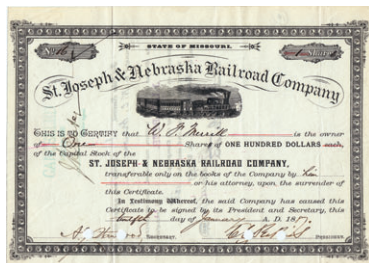 STATE OF MISSOURI.
No.
Share
St. Joseph & Nebraska Railroad Company
THIS IS TO CERTIFY that W. P. Merrill is the owner
of One Shares of ONE HUNDRED DOLLARS each,
of the Capital Stock of the
ST. JOSEPH & NEBRASKA RAILROAD COMPANY,
transferable only on the books of the Company by him
or his attorney, upon the surrender of
this Certificate.
In Testimony Whereof, the said Company has caused this
Certificate to be signed by its President and Secretary, this
day of January A. D. 188
SECRETARY.
PRESIDENT.